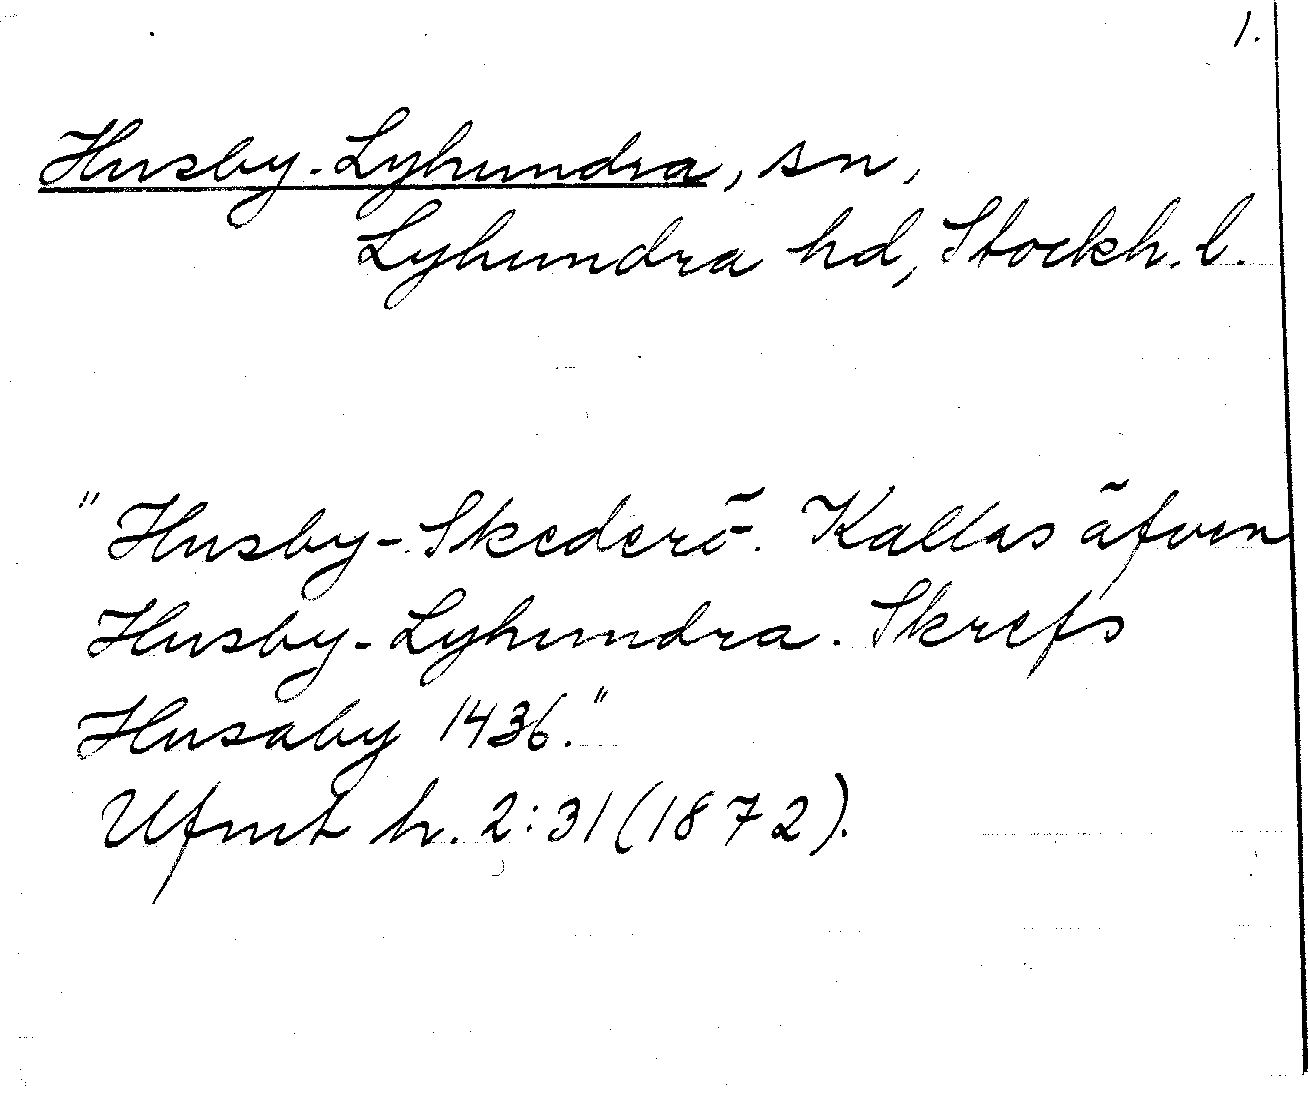 1.
Husby-Lyhundra, sn,
Lyhundra hd, Stockh. l.
"Husby-Skederö. Kallas äfven
Husby-Lyhundra. Skrefs
Husaby 1436."
Ufmt h. 2:31 (1872).